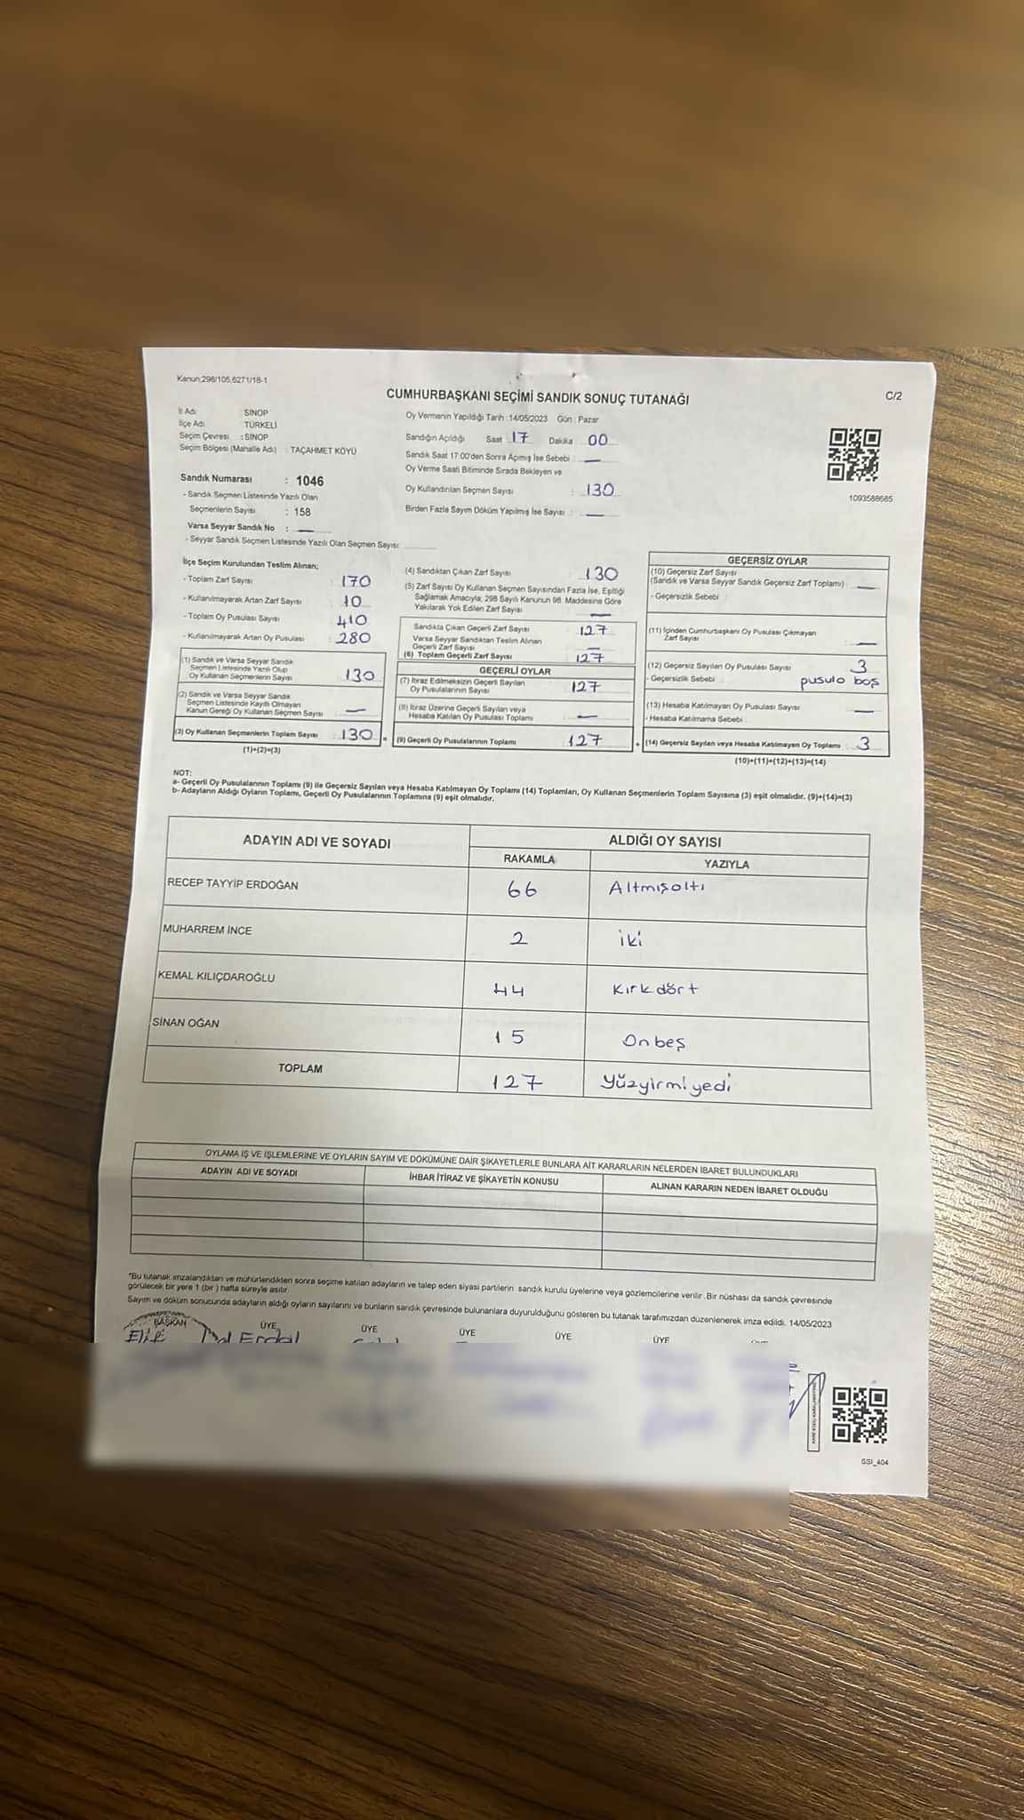 Kanun;298/105,6271/18-1
CUMHURBAŞKANI SEÇİMİ SANDIK SONUÇ TUTANAĞI
C/2
İl Adı : SİNOP
İlçe Adı : TÜRKELİ
Seçim Çevresi : SİNOP
Seçim Bölgesi (Mahalle Adı) : TAÇAHMET KÖYÜ
Sandık Numarası : 1046
- Sandık Seçmen Listesinde Yazılı Olan
Seçmenlerin Sayısı : 158
Varsa Seyyar Sandık No : —
- Seyyar Sandık Seçmen Listesinde Yazılı Olan Seçmen Sayısı:
Oy Vermenin Yapıldığı Tarih :14/05/2023 Gün : Pazar
Sandığın Açıldığı Saat 17 Dakika 00
Sandık Saat 17:00'den Sonra Açılmış İse Sebebi : —
Oy Verme Saati Bitiminde Sırada Bekleyen ve
Oy Kullandırılan Seçmen Sayısı : 130
Birden Fazla Sayım Döküm Yapılmış İse Sayısı : —
1093588685
İlçe Seçim Kurulundan Teslim Alınan;
- Toplam Zarf Sayısı 170
- Kullanılmayarak Artan Zarf Sayısı 10
- Toplam Oy Pusulası Sayısı 410
- Kullanılmayarak Artan Oy Pusulası 280
(1) Sandık ve Varsa Seyyar Sandık
Seçmen Listesinde Yazılı Olup
Oy Kullanan Seçmenlerin Sayısı 130
(2) Sandık ve Varsa Seyyar Sandık
Seçmen Listesinde Kayıtlı Olmayan
Kanun Gereği Oy Kullanan Seçmen Sayısı —
(3) Oy Kullanan Seçmenlerin Toplam Sayısı 130 =
(1)+(2)=(3)
(4) Sandıktan Çıkan Zarf Sayısı 130
(5) Zarf Sayısı Oy Kullanan Seçmen Sayısından Fazla İse, Eşitliği
Sağlamak Amacıyla, 298 Sayılı Kanunun 98. Maddesine Göre
Yakılarak Yok Edilen Zarf Sayısı —
Sandıkta Çıkan Geçerli Zarf Sayısı 127
Varsa Seyyar Sandıktan Teslim Alınan
Geçerli Zarf Sayısı —
(6) Toplam Geçerli Zarf Sayısı 127
GEÇERLİ OYLAR
(7) İtiraz Edilmeksizin Geçerli Sayılan
Oy Pusulalarının Sayısı 127
(8) İtiraz Üzerine Geçerli Sayılan veya
Hesaba Katılan Oy Pusulası Toplamı —
(9) Geçerli Oy Pusulalarının Toplamı 127 +
GEÇERSİZ OYLAR
(10) Geçersiz Zarf Sayısı
(Sandık ve Varsa Seyyar Sandık Geçersiz Zarf Toplamı) —
- Geçersizlik Sebebi :
(11) İçinden Cumhurbaşkanı Oy Pusulası Çıkmayan
Zarf Sayısı —
(12) Geçersiz Sayılan Oy Pusulası Sayısı 3
- Geçersizlik Sebebi : pusula boş
(13) Hesaba Katılmayan Oy Pusulası Sayısı —
- Hesaba Katılmama Sebebi :
(14) Geçersiz Sayılan veya Hesaba Katılmayan Oy Toplamı 3
(10)+(11)+(12)+(13)=(14)
NOT:
a- Geçerli Oy Pusulalarının Toplamı (9) ile Geçersiz Sayılan veya Hesaba Katılmayan Oy Toplamı (14) Toplamları, Oy Kullanan Seçmenlerin Toplam Sayısına (3) eşit olmalıdır. (9)+(14)=(3)
b- Adayların Aldığı Oyların Toplamı, Geçerli Oy Pusulalarının Toplamına (9) eşit olmalıdır.
ADAYIN ADI VE SOYADI ALDIĞI OY SAYISI
RAKAMLA YAZIYLA
RECEP TAYYİP ERDOĞAN 66 Altmışaltı
MUHARREM İNCE 2 iki
KEMAL KILIÇDAROĞLU 44 Kırkdört
SİNAN OĞAN 15 Onbeş
TOPLAM 127 Yüzyirmiyedi
OYLAMA İŞ VE İŞLEMLERİNE VE OYLARIN SAYIM VE DÖKÜMÜNE DAİR ŞİKAYETLERLE BUNLARA AİT KARARLARIN NELERDEN İBARET BULUNDUKLARI
ADAYIN ADI VE SOYADI İHBAR İTİRAZ VE ŞİKAYETİN KONUSU ALINAN KARARIN NEDEN İBARET OLDUĞU
*Bu tutanak imzalandıktan ve mühürlendikten sonra seçime katılan adayların ve talep eden siyasi partilerin sandık kurulu üyelerine veya gözlemcilerine verilir. Bir nüshası da sandık çevresinde
görülecek bir yere 1 (bir) hafta süreyle asılır.
Sayım ve döküm sonucunda adayların aldığı oyların sayılarını ve bunların sandık çevresinde bulunanlara duyurulduğunu gösteren bu tutanak tarafımızdan düzenlenerek imza edildi. 14/05/2023
BAŞKAN ÜYE ÜYE ÜYE ÜYE ÜYE
Elif Erdal
GSI_404